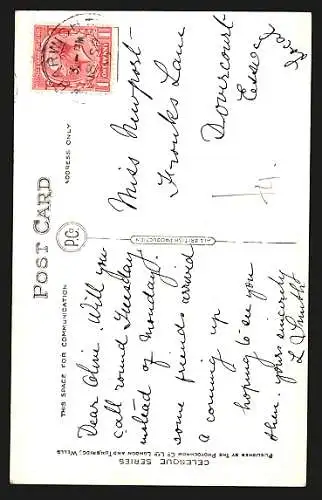 POST CARD
THIS SPACE FOR COMMUNICATION
ADDRESS ONLY
Dear Olive. Will you
call round Tuesday
instead of Monday.
some friends arrived
a coming up
hoping to see you
then. yours sincerely
L Smith
Miss Newport
Fronks Lane
Dovercourt
Essex
HARWICH
ALL BRITISH PRODUCTION
P.Co.
CELESQUE SERIES
PUBLISHED BY THE PHOTOCHROM CO. LTD. LONDON AND TUNBRIDGE WELLS